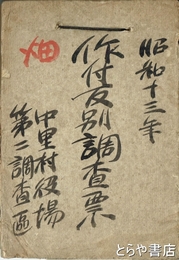 昭和十三年
作付反別調査票
畑
中里村役場
第二調査区
とらや書店